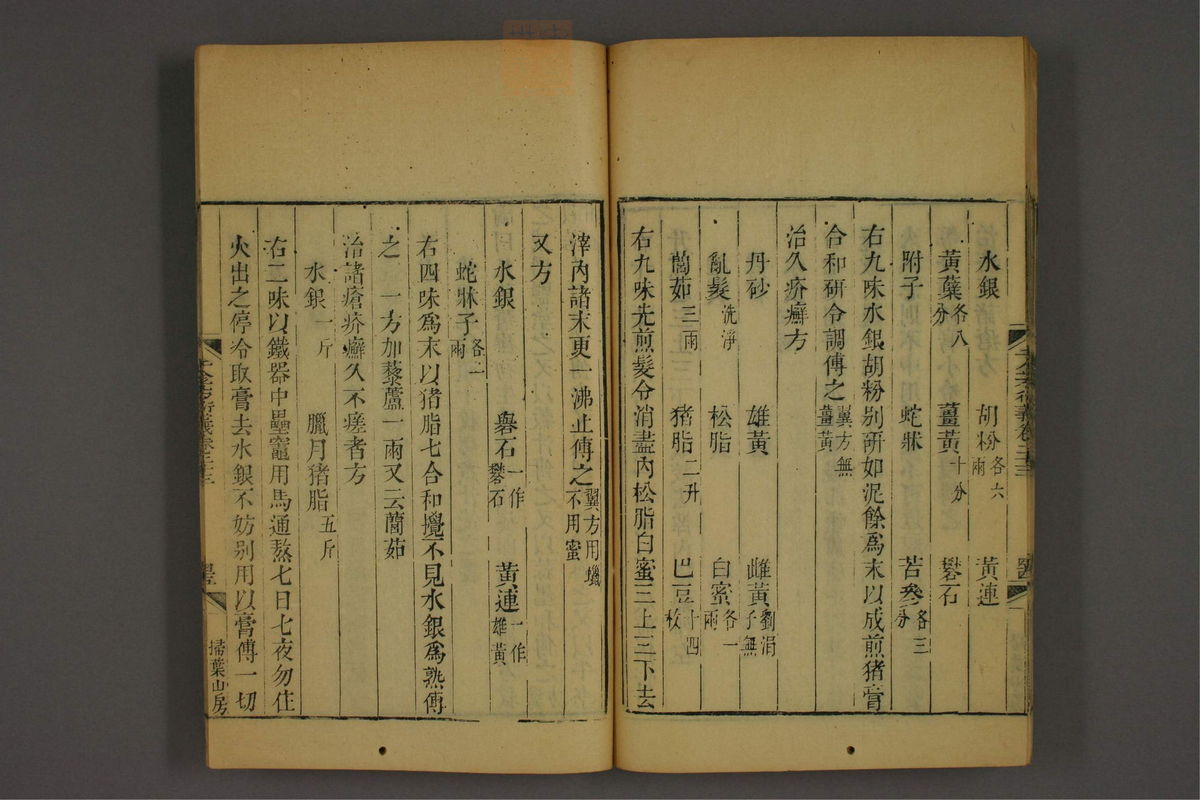 水銀 胡粉各六兩 黃連
黃蘗各八分 薑黃十分 礬石
附子 蛇牀 苦參各三分
右九味水銀胡粉别研如泥餘爲末以成煎猪膏
合和研令調傅之翼方無薑黃
治久疥癬方
丹砂 雄黃 雌黃劉涓子無
亂髮洗淨 松脂 白蜜各一兩
䕡茹三兩 猪脂二升 巴豆十四枚
右九味先煎髮令消盡內松脂白蜜三上三下去
滓內諸末更一沸止傅之翼方用蠟不用蜜
又方
水銀 礜石一作礬石 黃連一作雄黃
蛇牀子各二兩
右四味爲末以猪脂七合和攪不見水銀爲熟傅
之 一方加藜蘆一兩又云䕡茹
治諸瘡疥癬久不瘥者方
水銀一斤 臘月猪脂五斤
右二味以鐵器中壘竈用馬通熬七日七夜勿住
火出之停冷取膏去水銀不妨别用以膏傅一切
掃葉山房